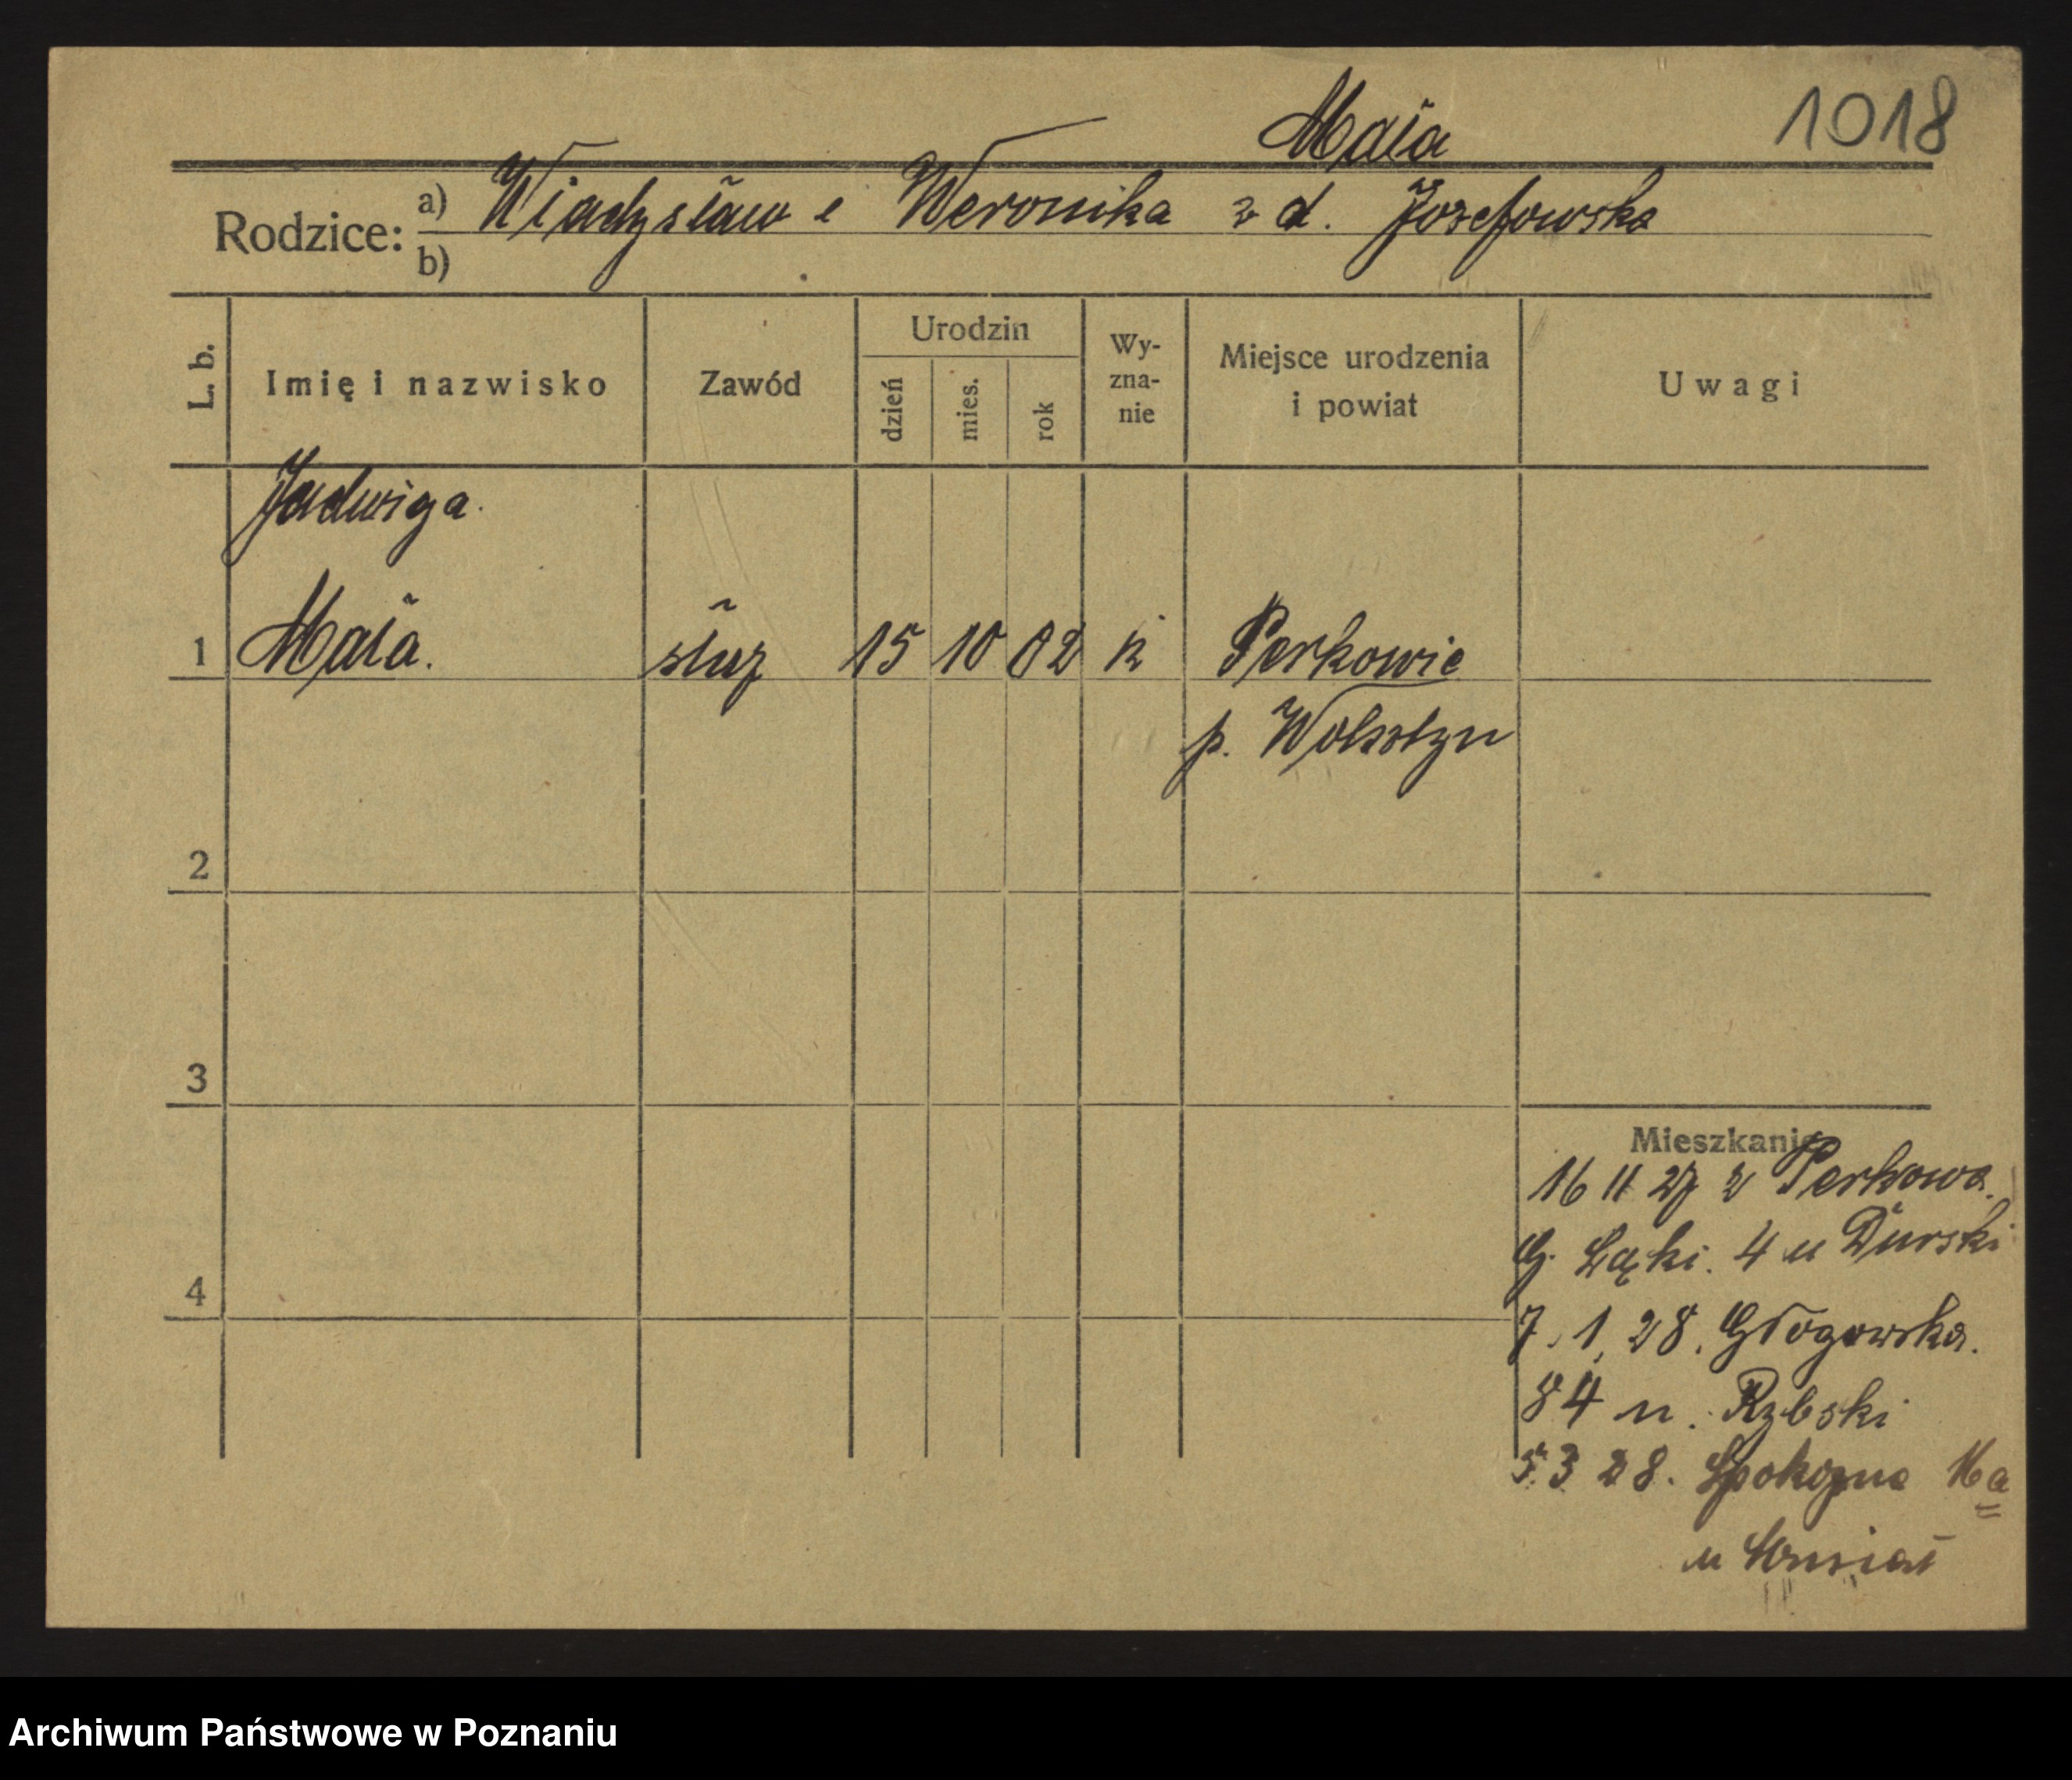 1018
Mała
Rodzice: a) Władysław i Weronika z d. Józefowska
b)
L. b. Imię i nazwisko Zawód Urodzin dzień mies. rok Wyznanie Miejsce urodzenia i powiat Uwagi
Jadwiga.
1 Mała. służ 15 10 02 k Perkowie
p. Wolsztyn
2
3
Mieszkanie
16 11 27 z Perkowa.
G. Łąki. 4 u Durski
4
7. 1. 28. Głogowska.
84 u. Rybski
5.3 28. Spokojna 16a
u
Archiwum Państwowe w Poznaniu